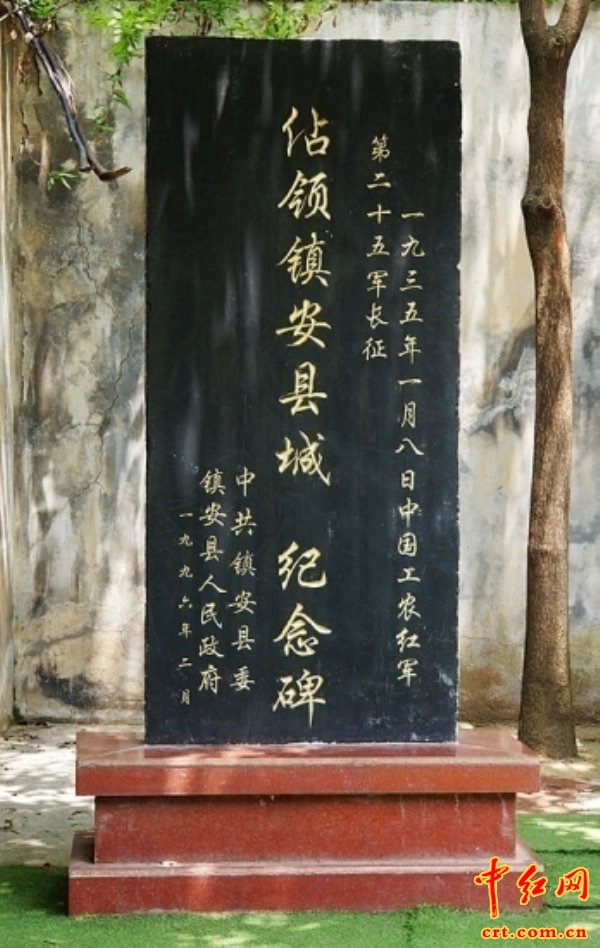 一九三五年一月八日中国工农红军
第二十五军长征
佔领镇安县城 纪念碑
中共镇安县委
镇安县人民政府
一九九六年二月
中红网
crt.com.cn